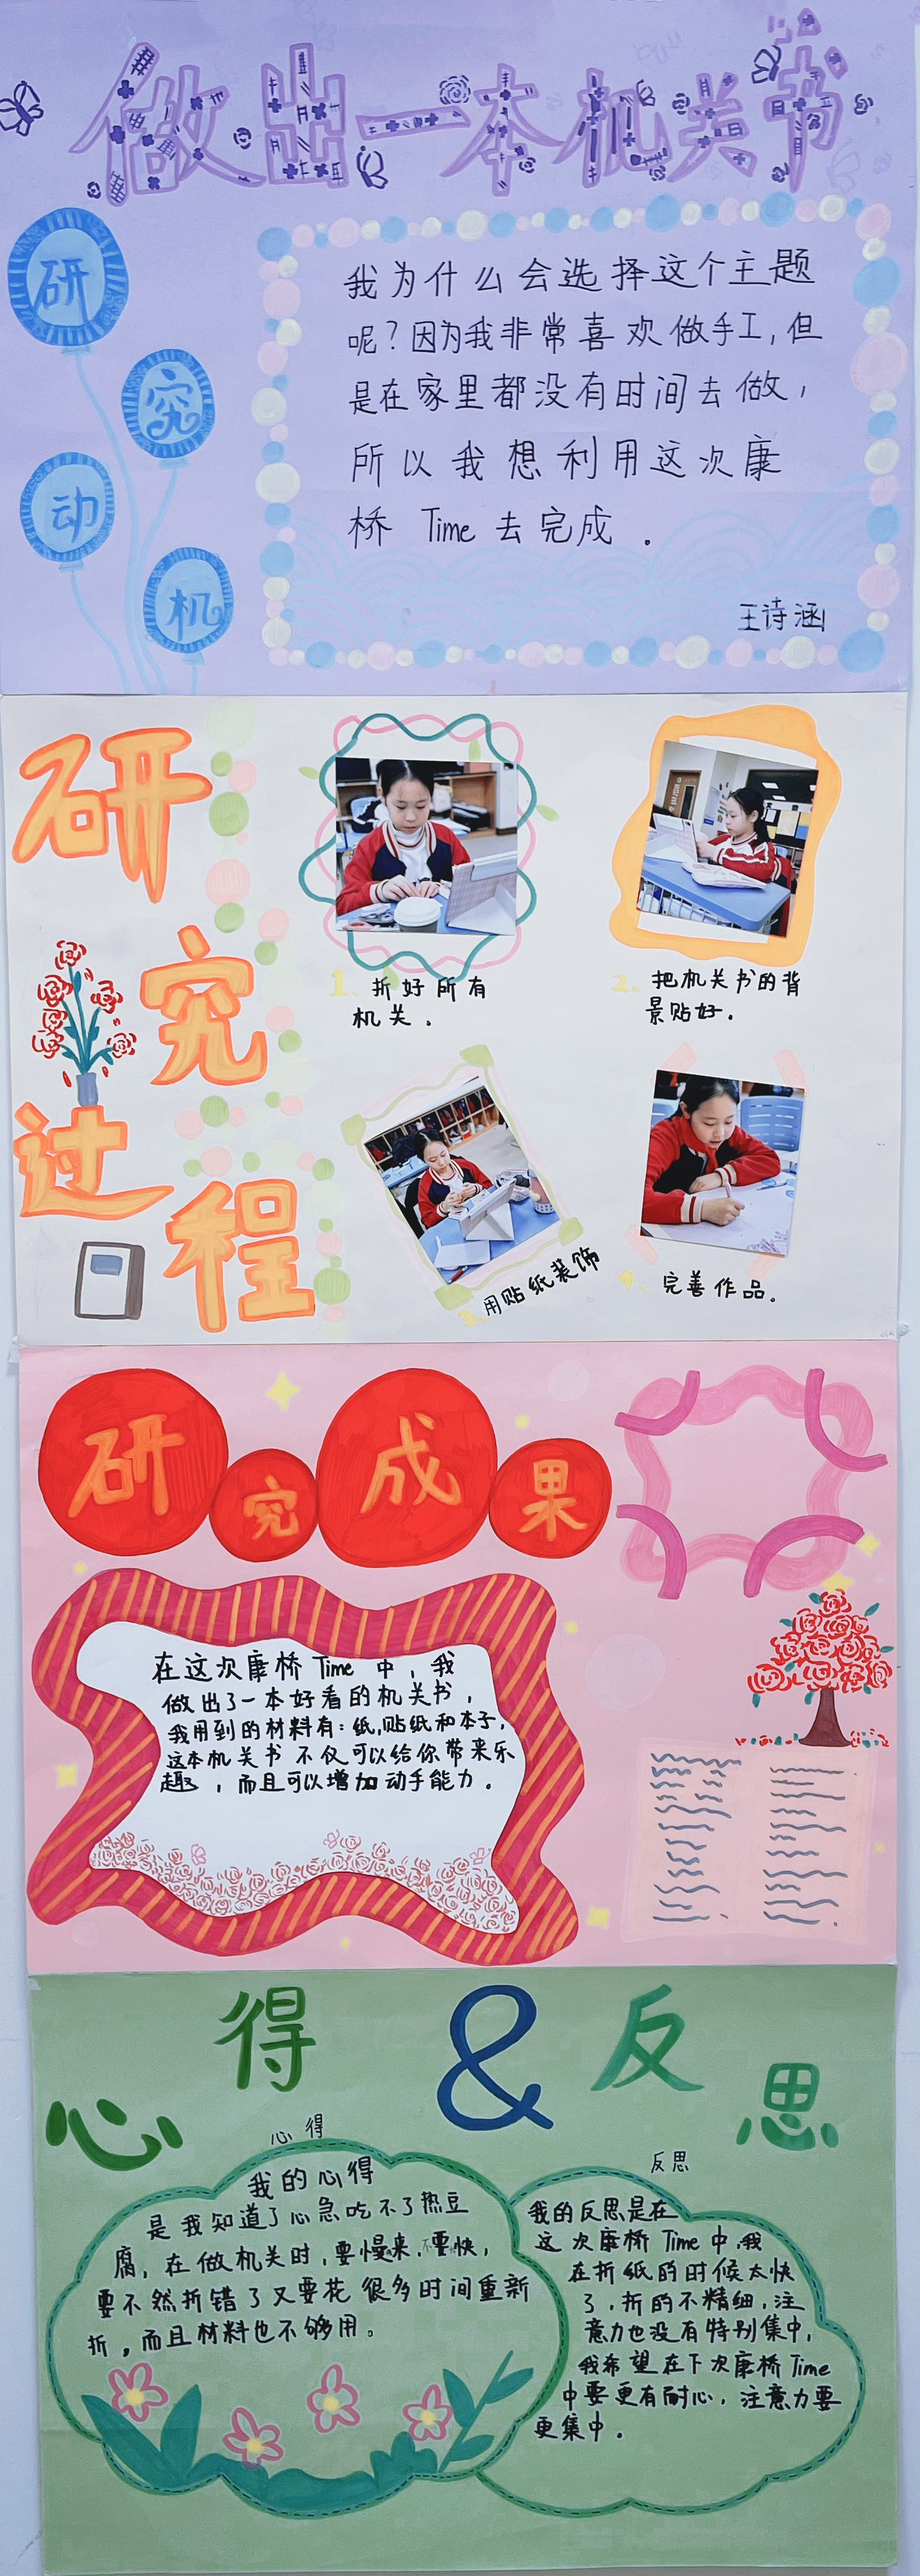 做出一本机关书
研究动机
我为什么会选择这个主题
呢？因为我非常喜欢做手工，但
是在家里都没有时间去做，
所以我想利用这次康
桥 Time 去完成 。
王诗涵
研究过程
1. 折好所有
机关 。
2. 把机关书的背
景贴好。
3. 用贴纸装饰
4. 完善作品。
研究成果
在这次康桥 Time 中，我
做出了一本好看的机关书，
我用到的材料有：纸，贴纸和本子，
这本机关书不仅可以给你带来乐
趣，而且可以增加动手能力。
心得&反思
心得
我的心得
是我知道了心急吃不了热豆
腐，在做机关时，要慢来，不要快，
要不然折错了又要花很多时间重新
折，而且材料也不够用。
反思
我的反思是在
这次康桥 Time 中，我
在折纸的时候太快
了，折的不精细，注
意力也没有特别集中，
我希望在下次康桥 Time
中要更有耐心，注意力要
更集中。